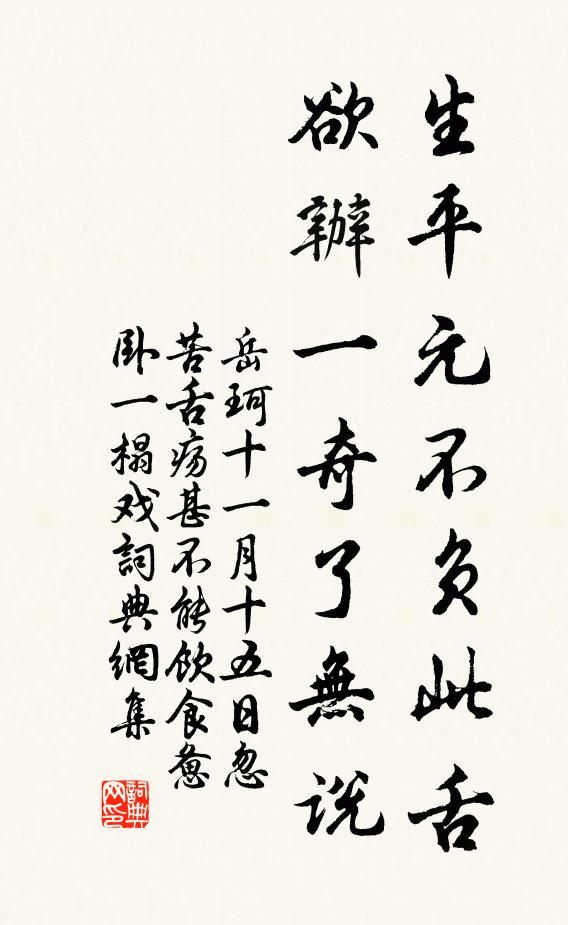 生平元不負此舌
欲辦一奇了無說
岳珂十一月十五日忽
苦舌瘍甚不能飲食憊
卧一榻戏詞典網集
詞典网印